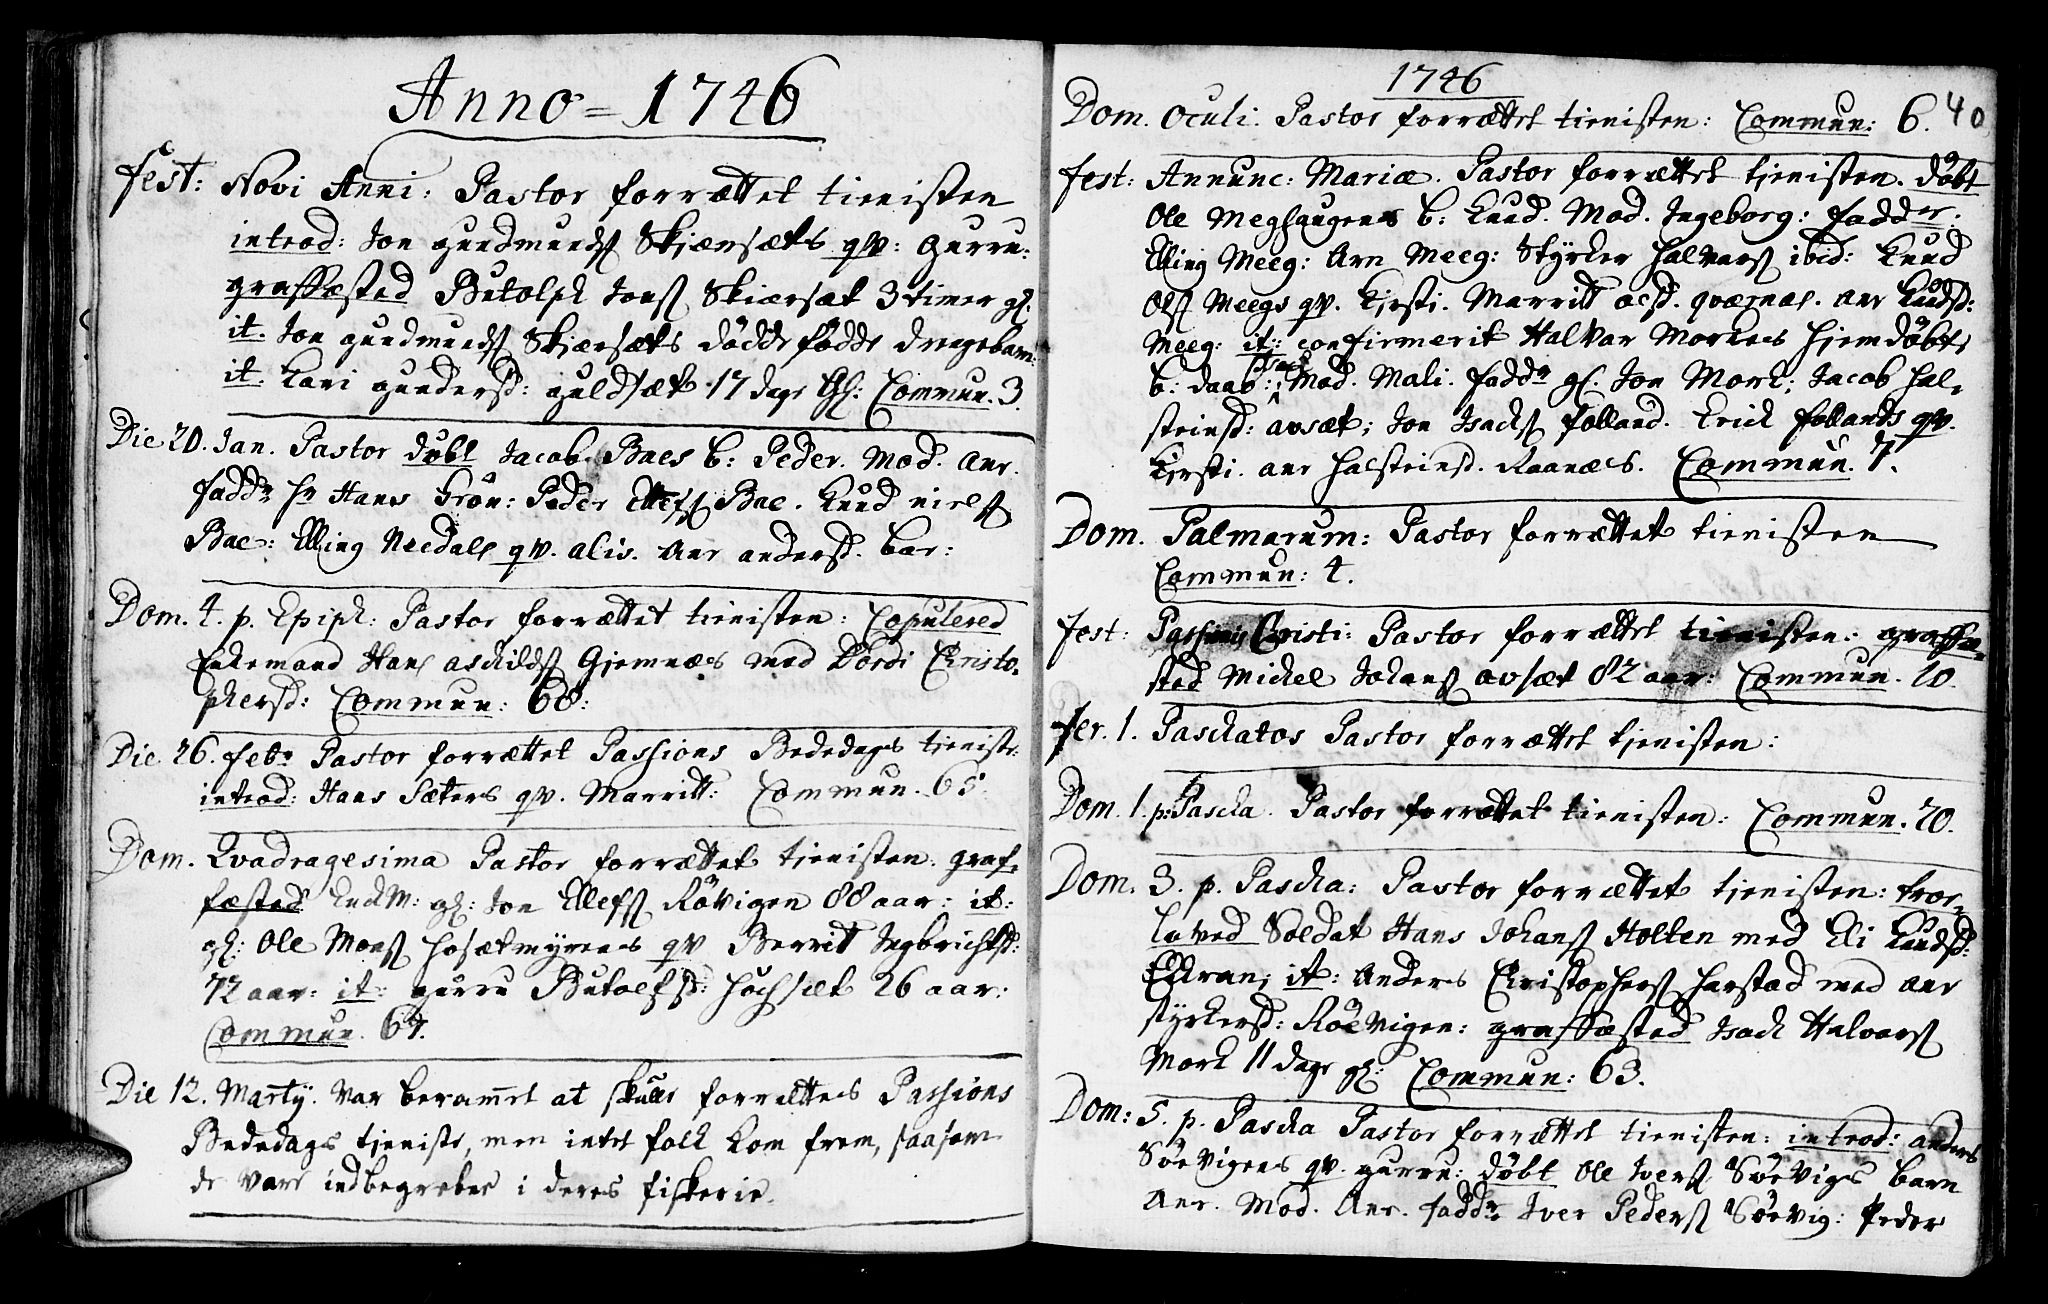 Anno = 1746
fest: Novi Anni: Pastor forrættet tienisten
introd: Jon gundmunds Skjærsæts qv: gurru:
graffæsted Butolph Jons Skiærsæt 3 timer gl.
it. Jon gundmunds Skjærsæts dödde födde drengebarn:
it. Kari gundersd: guldsæt 17 dage Gl: Commun. 3.
Die 20. Jan. Pastor döbt Jacob Baes b: Peder. Mod. Anr.
fadd: Hr Hans Grön: Peder Ellefs Bae. Knud niels
Bae: Elling Needals qv. alis. Anr andersd. bar:
Dom. 4. p. Epiph: Pastor forrættet tienisten: Copulered
Enkemand Hans aschilds Gjemnæs med Dordi Christo-
phersd: Commun: 68:
Die 26. febr Pastor forrættet Passions Bededags tieniste:
introd: Hans Sæters qv. Marritt: Commun. 65.
Dom. Qvadragesima Pastor forrættet tienisten: graf-
fæsted gl: Jon Ellefs Rövigen 88 aar: it:
gl: Ole Mons hosætmyrens qv Berritt Ingbrichtsd:
72 aar: it: gurru Butolfsd: Hochsæt 26 aar:
Commun. 67.
Die 12. Martij. var beramet at skulle forrettes Passions
Bededags tjeniste, men intet folk kom frem, saasom
de vare indbegrebne i deres fiskerie.
1746
40
Dom. Oculi. Pastor forrættet tienisten: Commun: 6.
fest: Annunc: Mariæ. Pastor forrættet tjenisten. döbt
Ole Meghaugens b: Knud. Mod. Ingeborg: fadder:
Elling Meeg: Arn Meeg: Styrker halvars ibid: Knud
Ols Meegs qv. Kirsti. Marritt Olsd. qværnæs. Anr Knudsd:
Meeg: it: confirmerit Halvar Morkes hjemdöbte
b: daab: Isack Mod. Mali. faddr gl. Jon Mork; Jacob Hal-
steinsd: avsæt; Jon Isachs folland. Erich follands qv.
Kirsti. anr halsteinsd. Raanæs. Commun. 7.
Dom. Palmarum: Pastor forrættet tienisten
Commun: 4.
fest: Passionis Christi: Pastor forrættet tienisten: graffæ-
sted Michel Johans avsæt 82 aar: Commun. 10.
fer. 1. Paschatos Pastor forrættet tjenisten:
Dom. 1. p: Pascha. Pastor forrættet tienisten: Commun. 20.
Dom. 3. p. Pascha: Pastor forrættet tjenisten: troe-
lo ved Soldat Hans Johans Holten med Eli Knudsd:
Eldran; it: Anders Christophers harstad med Anr
styrkersd: Röevigen: graffæsted Isach Halvars
Mork 11 dage gl: Commun: 63.
Dom: 5. p. Pascha Pastor forrættet tienisten: introd: anders
Söevigens qv. gurru: döbt Ole Ivers Söevigs barn
Anr. Mod. Anr. faddr Iver Peders Söevig: Peder